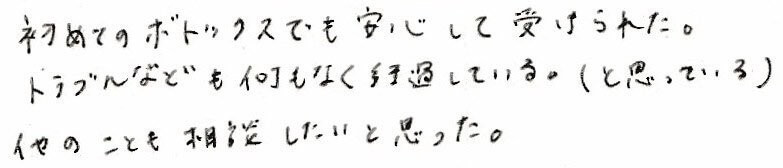 初めてのボトックスでも安心して受けられた。
トラブルなども何もなく経過している。(と思っている)
他のことも相談したいと思った。